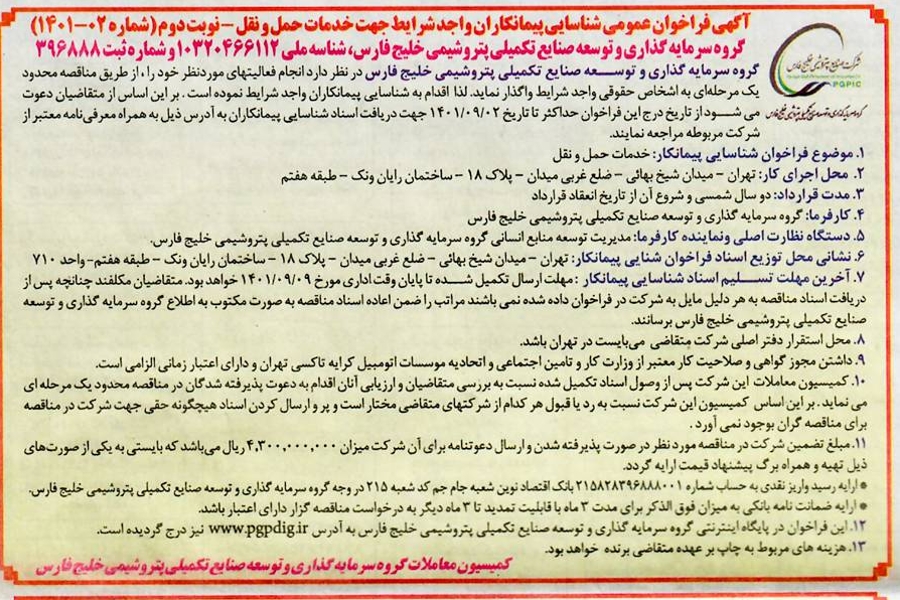 آگهی فراخوان عمومی شناسایی پیمانکاران واجد شرایط جهت خدمات حمل و نقل – نوبت دوم (شماره ۰۲-۱۴۰۱)
گروه سرمایه گذاری و توسعه صنایع تکمیلی پتروشیمی خلیج فارس، شناسه ملی ۱۰۳۲۰۴۶۶۱۱۲ و شماره ثبت ۳۹۶۸۸۸
شرکت صنایع پتروشیمی خلیج فارس
PGPIC
گروه سرمایه گذاری و توسعه صنایع تکمیلی پتروشیمی خلیج فارس
گروه سرمایه گذاری و توســـعه صنایع تکمیلی پتروشیمی خلیج فارس در نظر دارد انجام فعالیتهای موردنظر خود را، از طریق مناقصه محدود
یک مرحله‌ای به اشخاص حقوقی واجد شرایط واگذار نماید. لذا اقدام به شناسایی پیمانکاران واجد شرایط نموده است . بر این اساس از متقاضیان دعوت
می شـــود از تاریخ درج این فراخوان حداکثر تا تاریخ ۱۴۰۱/۰۹/۰۲ جهت دریافت اسناد شناسایی پیمانکاران به آدرس ذیل به همراه معرفی‌نامه معتبر از
شرکت مربوطه مراجعه نمایند.
۱. موضوع فراخوان شناسایی پیمانکار: خدمات حمل و نقل
۲. محل اجرای کار: تهران – میدان شیخ بهائی – ضلع غربی میدان – پلاک ۱۸ – ساختمان رایان ونک – طبقه هفتم
۳. مدت قرارداد: دو سال شمسی و شروع آن از تاریخ انعقاد قرارداد
۴. کارفرما: گروه سرمایه گذاری و توسعه صنایع تکمیلی پتروشیمی خلیج فارس
۵. دستگاه نظارت اصلی ونماینده کارفرما: مدیریت توسعه منابع انسانی گروه سرمایه گذاری و توسعه صنایع تکمیلی پتروشیمی خلیج فارس.
۶. نشانی محل توزیع اسناد فراخوان شنایی پیمانکار: تهران – میدان شیخ بهائی – ضلع غربی میدان – پلاک ۱۸ – ساختمان رایان ونک – طبقه هفتم–واحد ۷۱۰
۷. آخرین مهلت تســـلیم اسناد شناسایی پیمانکار : مهلت ارسال تکمیل شـــده تا پایان وقت اداری مورخ ۱۴۰۱/۰۹/۰۹ خواهد بود. متقاضیان مکلفند چنانچه پس از
دریافت اسناد مناقصه به هر دلیل مایل به شرکت در فراخوان داده شده نمی باشند مراتب را ضمن اعاده اسناد مناقصه به صورت مکتوب به اطلاع گروه سرمایه گذاری و توسعه
صنایع تکمیلی پتروشیمی خلیج فارس برسانند.
۸. محل استقرار دفتر اصلی شرکت متقاضی می‌بایست در تهران باشد.
۹. داشتن مجوز گواهی و صلاحیت کار معتبر از وزارت کار و تامین اجتماعی و اتحادیه موسسات اتومبیل کرایه تاکسی تهران و دارای اعتبار زمانی الزامی است.
۱۰. کمیسیون معاملات این شرکت پس از وصول اسناد تکمیل شده نسبت به بررسی متقاضیان و ارزیابی آنان اقدام به دعوت پذیرفته شدگان در مناقصه محدود یک مرحله ای
می نماید . بر این اساس کمیسیون این شرکت نسبت به رد یا قبول هر کدام از شرکتهای متقاضی مختار است و پر و ارسال کردن اسناد هیچگونه حقی جهت شرکت در مناقصه
برای مناقصه گران بوجود نمی آورد .
۱۱. مبلغ تضمین شرکت در مناقصه مورد نظر در صورت پذیرفته شدن و ارسال دعوتنامه برای آن شرکت میزان ۴,۳۰۰,۰۰۰,۰۰۰ ریال می‌باشد که بایستی به یکی از صورت‌های
ذیل تهیه و همراه برگ پیشنهاد قیمت ارایه گردد.
* ارایه رسید واریز نقدی به حساب شماره ۲۱۵۸۲۸۳۹۶۸۸۸۰۰۱ بانک اقتصاد نوین شعبه جام جم کد شعبه ۲۱۵ در وجه گروه سرمایه گذاری و توسعه صنایع تکمیلی پتروشیمی خلیج فارس.
* ارایه ضمانت نامه بانکی به میزان فوق الذکر برای مدت ۳ ماه با قابلیت تمدید تا ۳ ماه دیگر به درخواست مناقصه گزار دارای اعتبار باشد.
۱۲. این فراخوان در پایگاه اینترنتی گروه سرمایه گذاری و توسعه صنایع تکمیلی پتروشیمی خلیج فارس به آدرس www.pgpdig.ir نیز درج گردیده است.
۱۳. هزینه های مربوط به چاپ بر عهده متقاضی برنده خواهد بود.
کمیسیون معاملات گروه سرمایه گذاری و توسعه صنایع تکمیلی پتروشیمی خلیج فارس